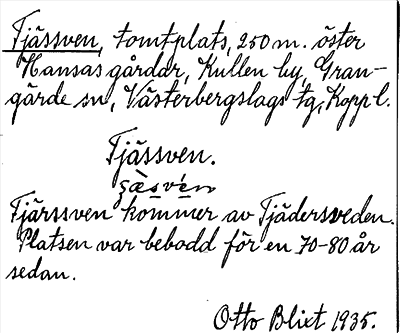 Fjässven, tomtplats, 250 m. öster
Hansas gårdar, Kullen by, Gran-
gärde sn, Västerbergslags tg, Koppl.
Fjässven.
Fjärssven kommer av Fjädersveden.
Platsen var bebodd för en 70-80 år
sedan.
Otto Blixt 1935.